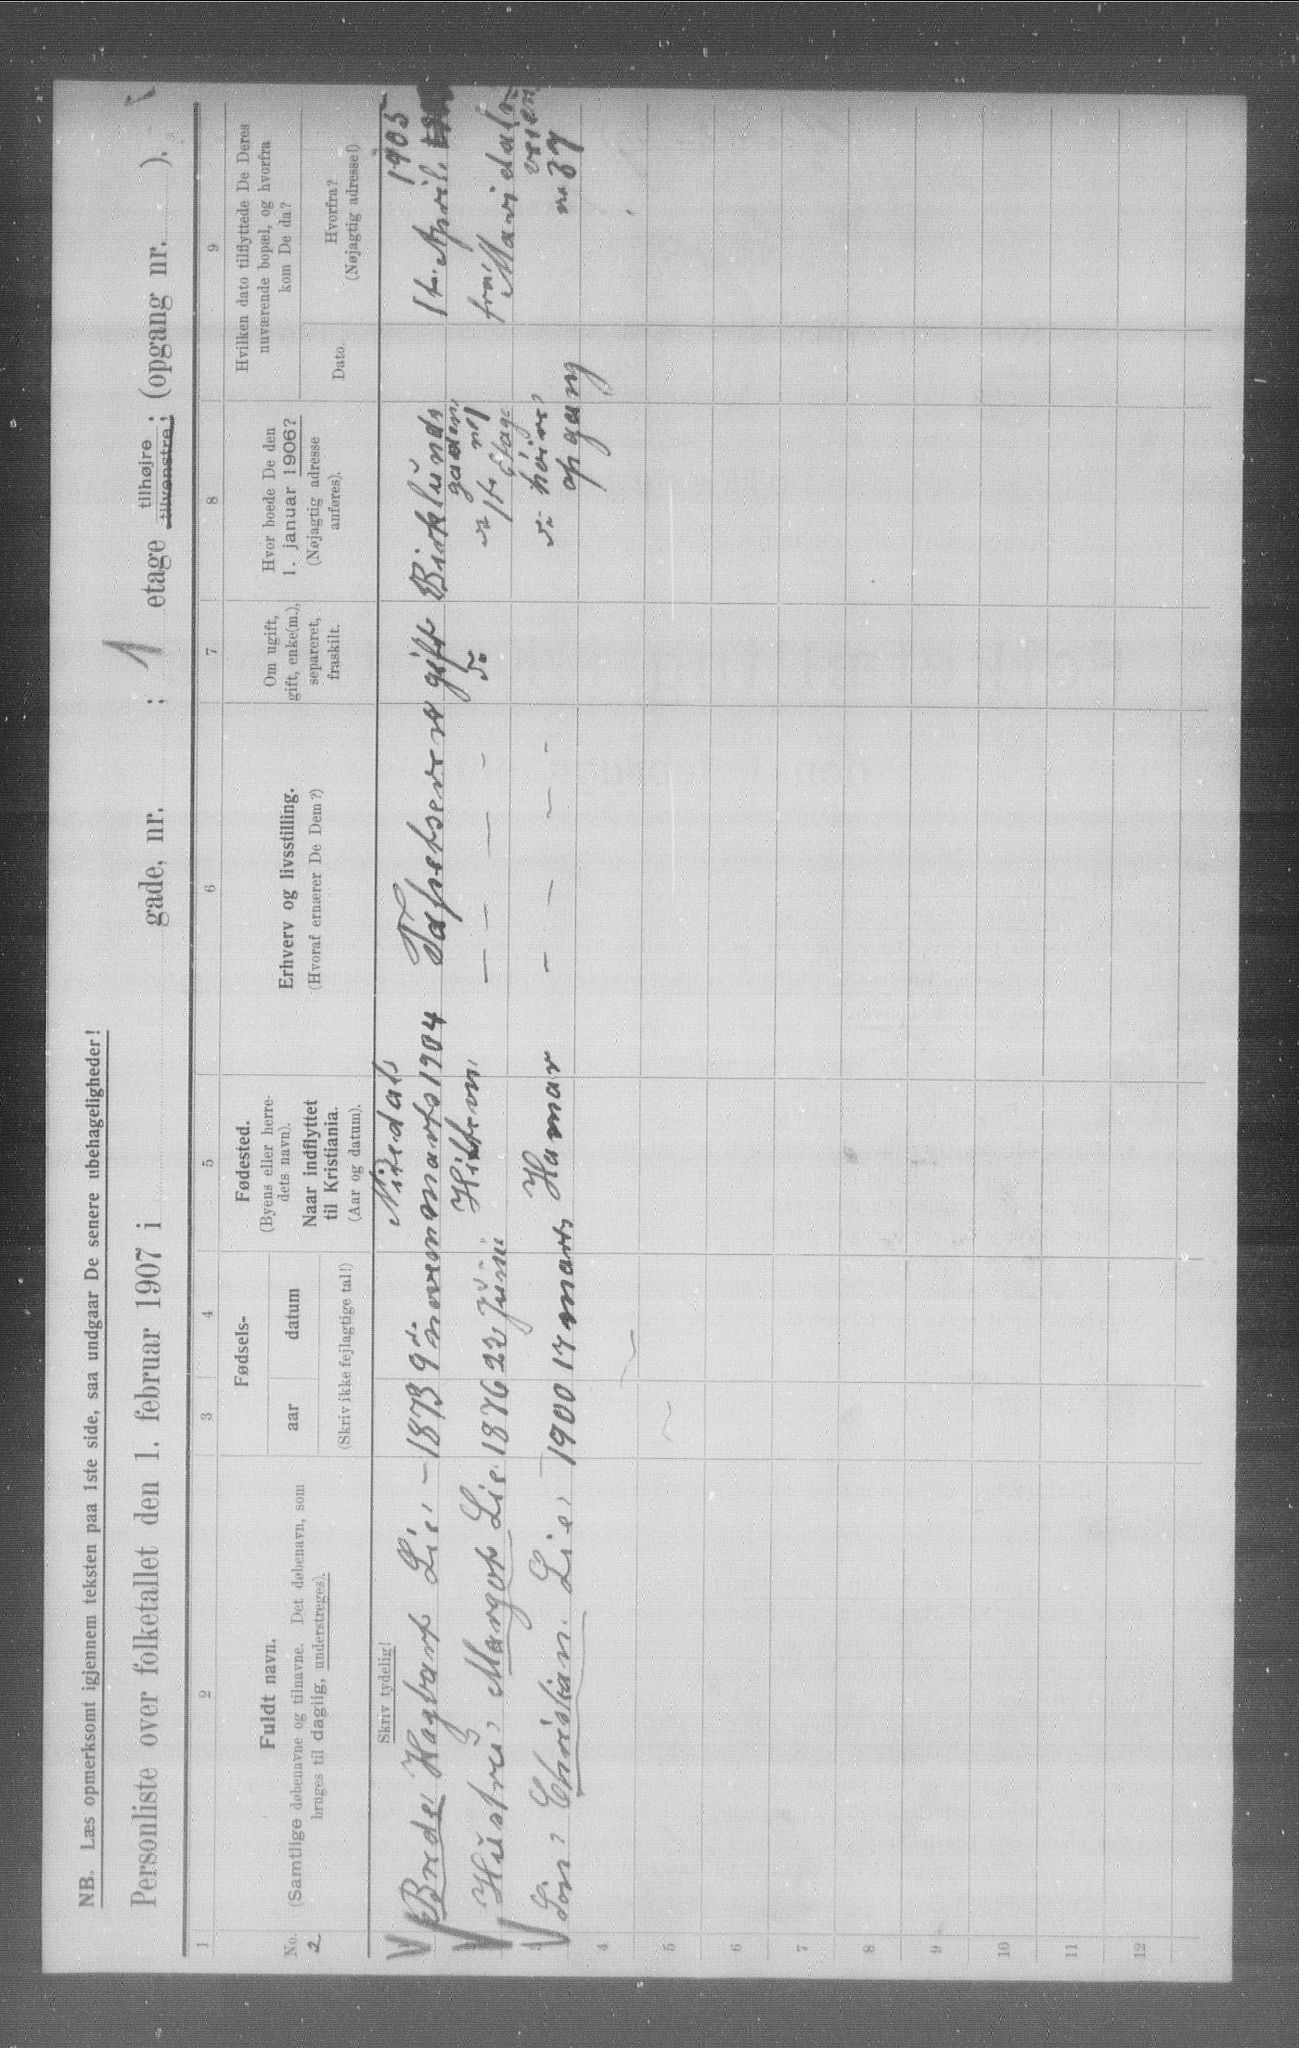 NB. Læs opmerksomt igjennem teksten paa 1ste side, saa undgaar De senere ubehageligheder!
Personliste over folketallet den 1. februar 1907 i gade, nr. ; 1 etage tilhøjre tilvenstre; (opgang nr. ).
1 2 3 4 5 6 7 8 9
No. 2
Fuldt navn.
(Samtlige døbenavne og tilnavne. Det døbenavn, som
bruges til daglig, understreges).
Fødsels-
aar datum
(Skriv ikke fejlagtige tal!)
Fødested.
(Byens eller herre-
dets navn).
Naar indflyttet
til Kristiania.
(Aar og datum).
Erhverv og livsstilling.
(Hvoraf ernærer De Dem?)
Om ugift,
gift, enke(m.),
separeret,
fraskilt.
Hvor boede De den
1. januar 1906?
(Nøjagtig adresse
anføres).
Hvilken dato tilflyttede De Deres
nuværende bopæl, og hvorfra
kom De da?
Dato.
Hvorfra?
(Nøjagtig adresse!)
Skriv tydelig!
Brede Hagbart Lie - 1873 9 Nitedal marts 1904 gift Birklunds gaden 1ste April 1905
Hustru Margot Lie 1876 22 Juni - - - - do 1ste Etage fra Maridals veien
3 Søn Christian Lie 1900 17 marts Hamar - - - - høire opgang no 37
4
5
6
7
8
9
10
11
12